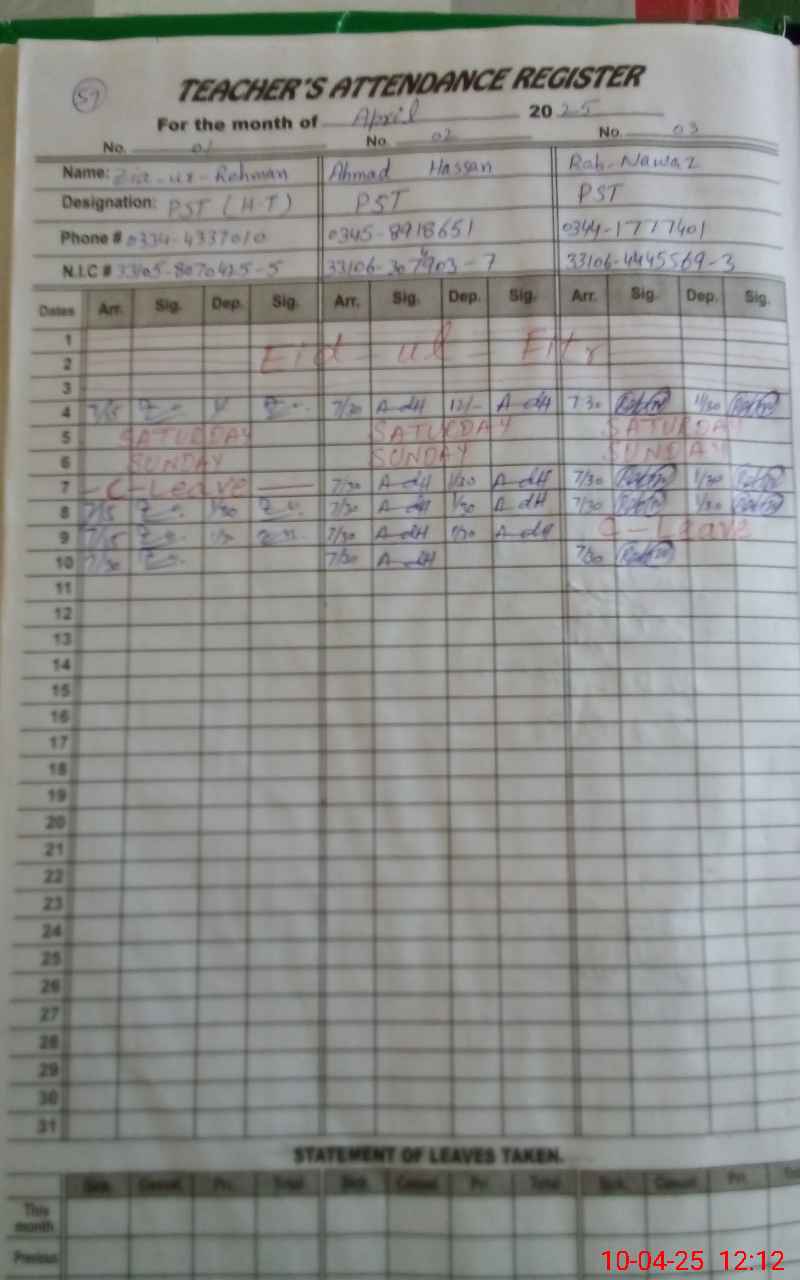 57
TEACHER'S ATTENDANCE REGISTER
For the month of April 2025
No. 01 No. 02 No. 03
Name: Zia-ur-Rehman Ahmad Hassan Rab-Nawaz
Designation: PST (H-T) PST PST
Phone # 0334-4337010 0345-8918651 0344-1777401
N.I.C # 33105-8070425-5 33106-3 7903-7 33106-4445569-3
Dates Arr. Sig. Dep. Sig. Arr. Sig. Dep. Sig. Arr. Sig. Dep. Sig.
1
2 Eid-ul-Fitr
3
4 7/15 7/30 A-dH 12/- A-dH 7.30 11/30
5 SATURDAY SATURDAY SATURDAY
6 SUNDAY SUNDAY SUNDAY
7 -C-Leave- 7/30 A-dH 1/30 A-dH 7/30 1/30
8 7/15 1/30 7/30 A-dH 1/30 A-dH 7/30 1/30
9 7/15 1/30 7/30 A-dH 1/30 A-dH C-Leave
10 7/30 7/30 A-dH 7/30
11
12
13
14
15
16
17
18
19
20
21
22
23
24
25
26
27
28
29
30
31
STATEMENT OF LEAVES TAKEN.
Sick. Casual. Pri. Total Sick. Casual. Pri Total Sick. Casual. Pri.
This month
Previous
10-04-25 12:12